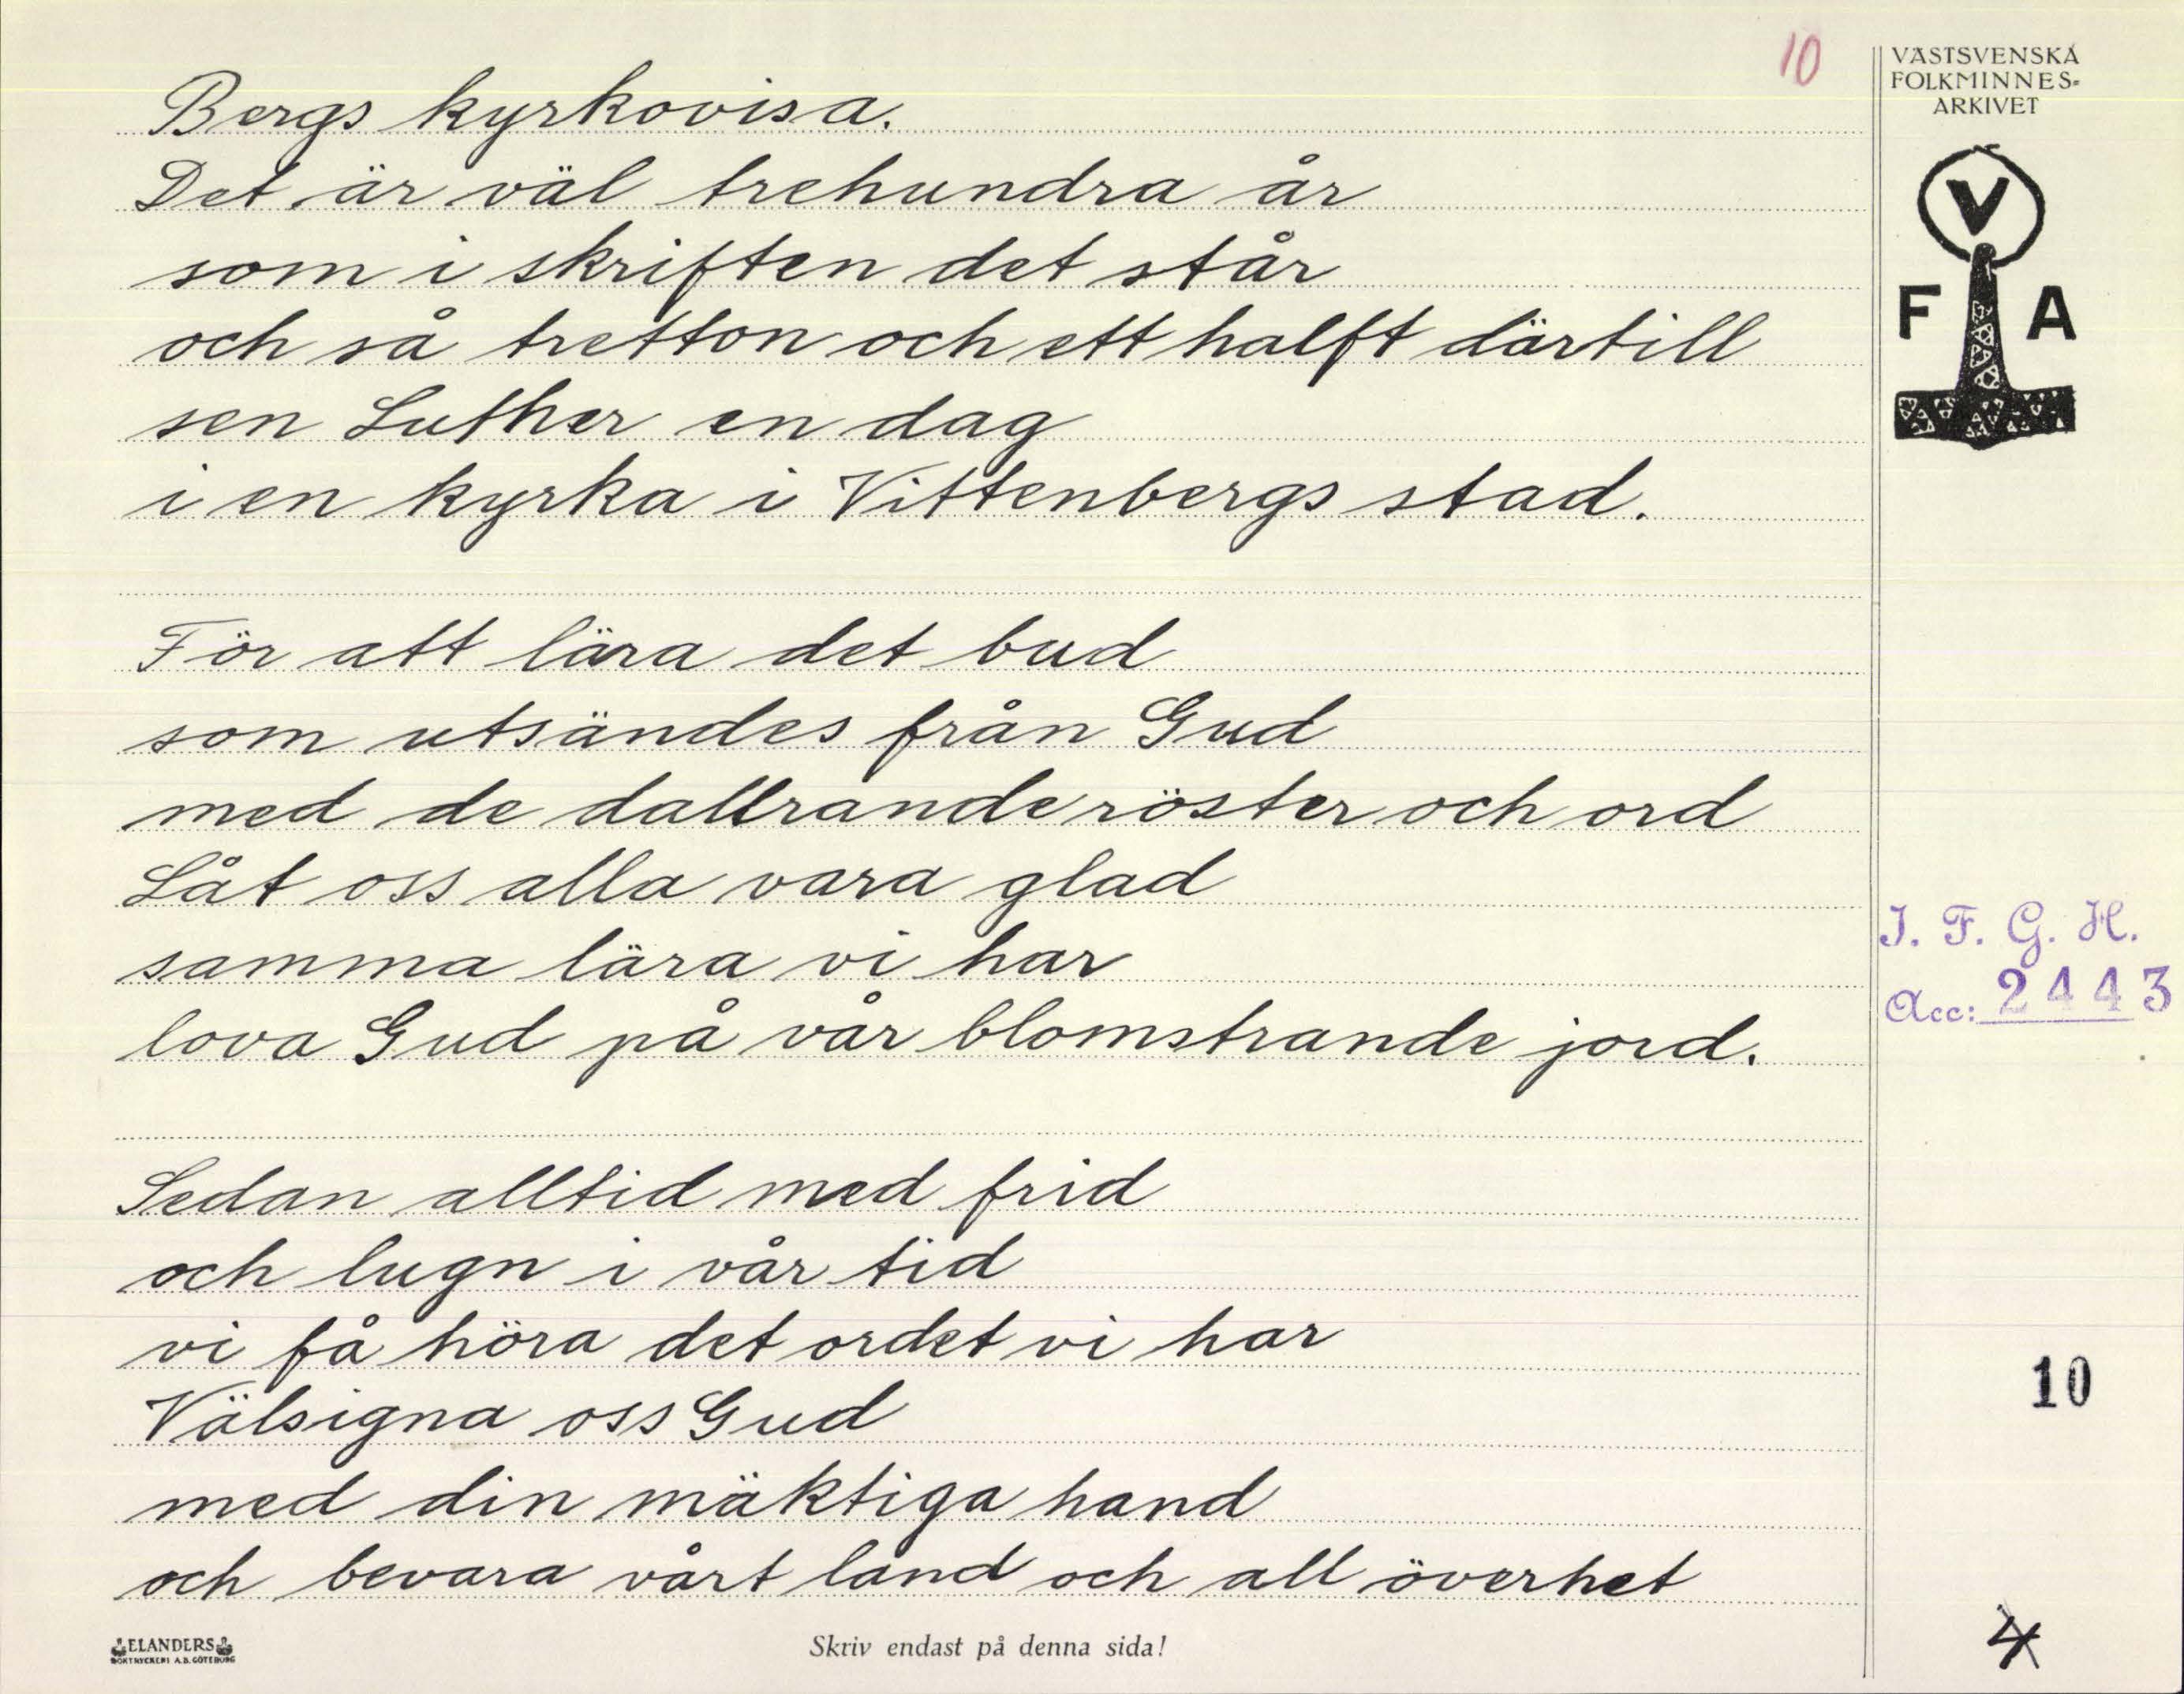 10
Bergs kyrkovisa.
Det är väl trehundra år
som i skriften det står
och så tretton och ett halft därtill
sen Luther en dag
i en kyrka i Vittenbergs stad.
För att lära det bud
som utsändes från Gud
med de dallrande röster och ord
Låt oss alla vara glad
samma lära vi har
lova Gud på vår blomstrande jord.
Sedan alltid med frid
och lugn i vår tid
vi få höra det ordet vi har
Välsigna oss Gud
med din mäktiga hand
och bevara vårt land och all överhet
VÄSTSVENSKA
FOLKMINNES-
ARKIVET
V
F A
I. F. G. H.
Acc: 2443
10
4
ELANDERS
BOKTRYCKERI A.B. GÖTEBORG
Skriv endast på denna sida!